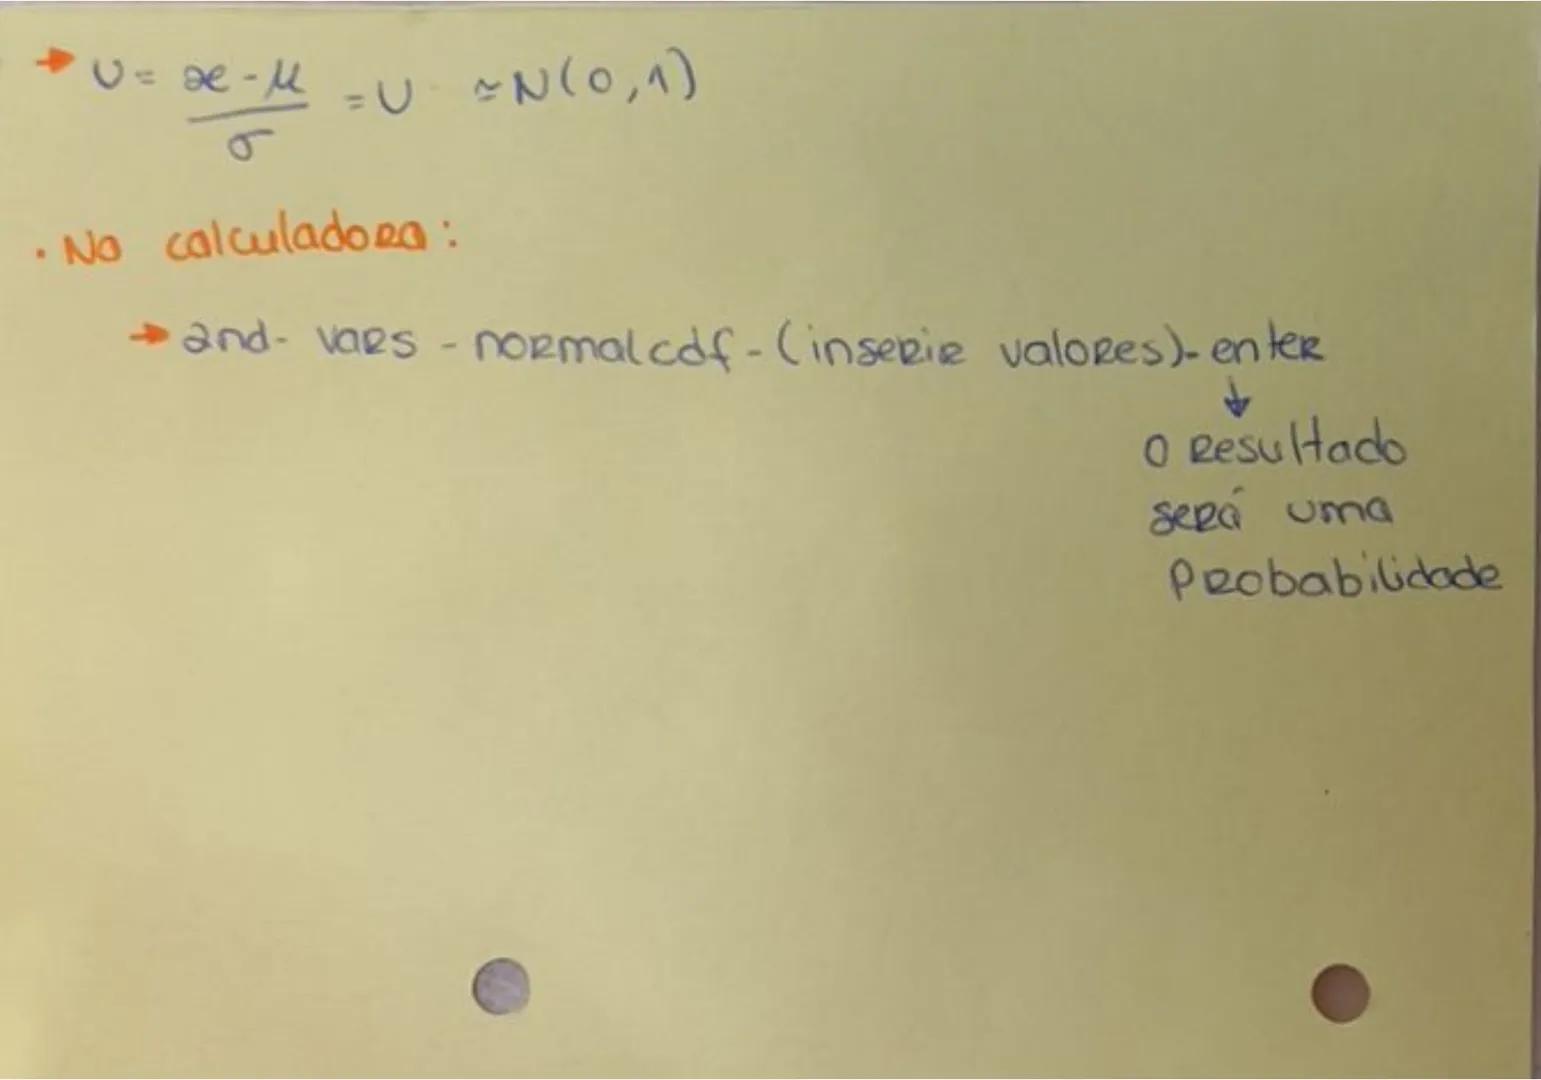 → U = x - μ / σ = U ≃ N(0,1)
· Na calculadora:
→ 2nd - vars - normalcdf - (inserir valores) - enter
↓
o resultado
será uma
Probabilidade